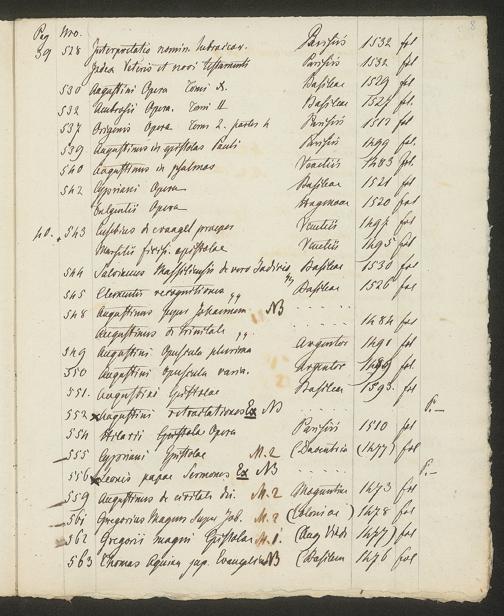 Pag Nro. 8
39 528 Interpretatio nomin. hebraicor. Parisiis 1532 fol
Index Veteris et novi testamenti Parisiis 1532 fol
530 Augustini Opera Tomi X. Basileae 1529 fol
532 Ambrosii Opera. Tomi II Basileae 1527. fol.
537 Origenis Opera Tomi 2. partes 4 Parisiis 1512 fol
539 Augustinus in epistolas Pauli Parisiis 1499 fol.
540 Augustinus in psalmos Venetiis 1483 fol.
542 Cypriani Opera Basileae 1521 fol
Fulgentii Opera Hagenoae 1520 fol
40. 543 Eusebius de evangel. praepar Venetiis 1497 fol
Marsilii ficin. epistolae Venetiis 1495 fol
544 Salvianus Massiliensis de vero Judicio Basileae 1530 fol
545 Clementis recognitiones Basileae 1526 fol
548 Augustinus super Johannem NB . . . .
Augustinus de trinitate 1484 fol
549 Augustini Opuscula plurima Argentor 1491 fol
550 Augustini Opuscula varia. Argentor 1489 fol
551. Augustini Epistolae Basileae 1593. fol
552 x Augustini retractationes Ex NB . . . . P.—
554 Hilarii Opera Parisiis 1510 fol
555 Cypriani Epistolae M. 2 (Daventriae (1477) fol
556 x Leonis papae Sermones Ex NB . . . . P.—
559 Augustinus de civitate dei. M. 2 Moguntiae 1473 fol
561 Gregorius Magnus super Job. M. 2 (Coloniae) 1478 fol
562 Gregorii magni Epistolae M. 1. (Aug Vind) 1477) fol
563 Thomas Aquin sup. Evangelia NB (Basileae 1476 fol